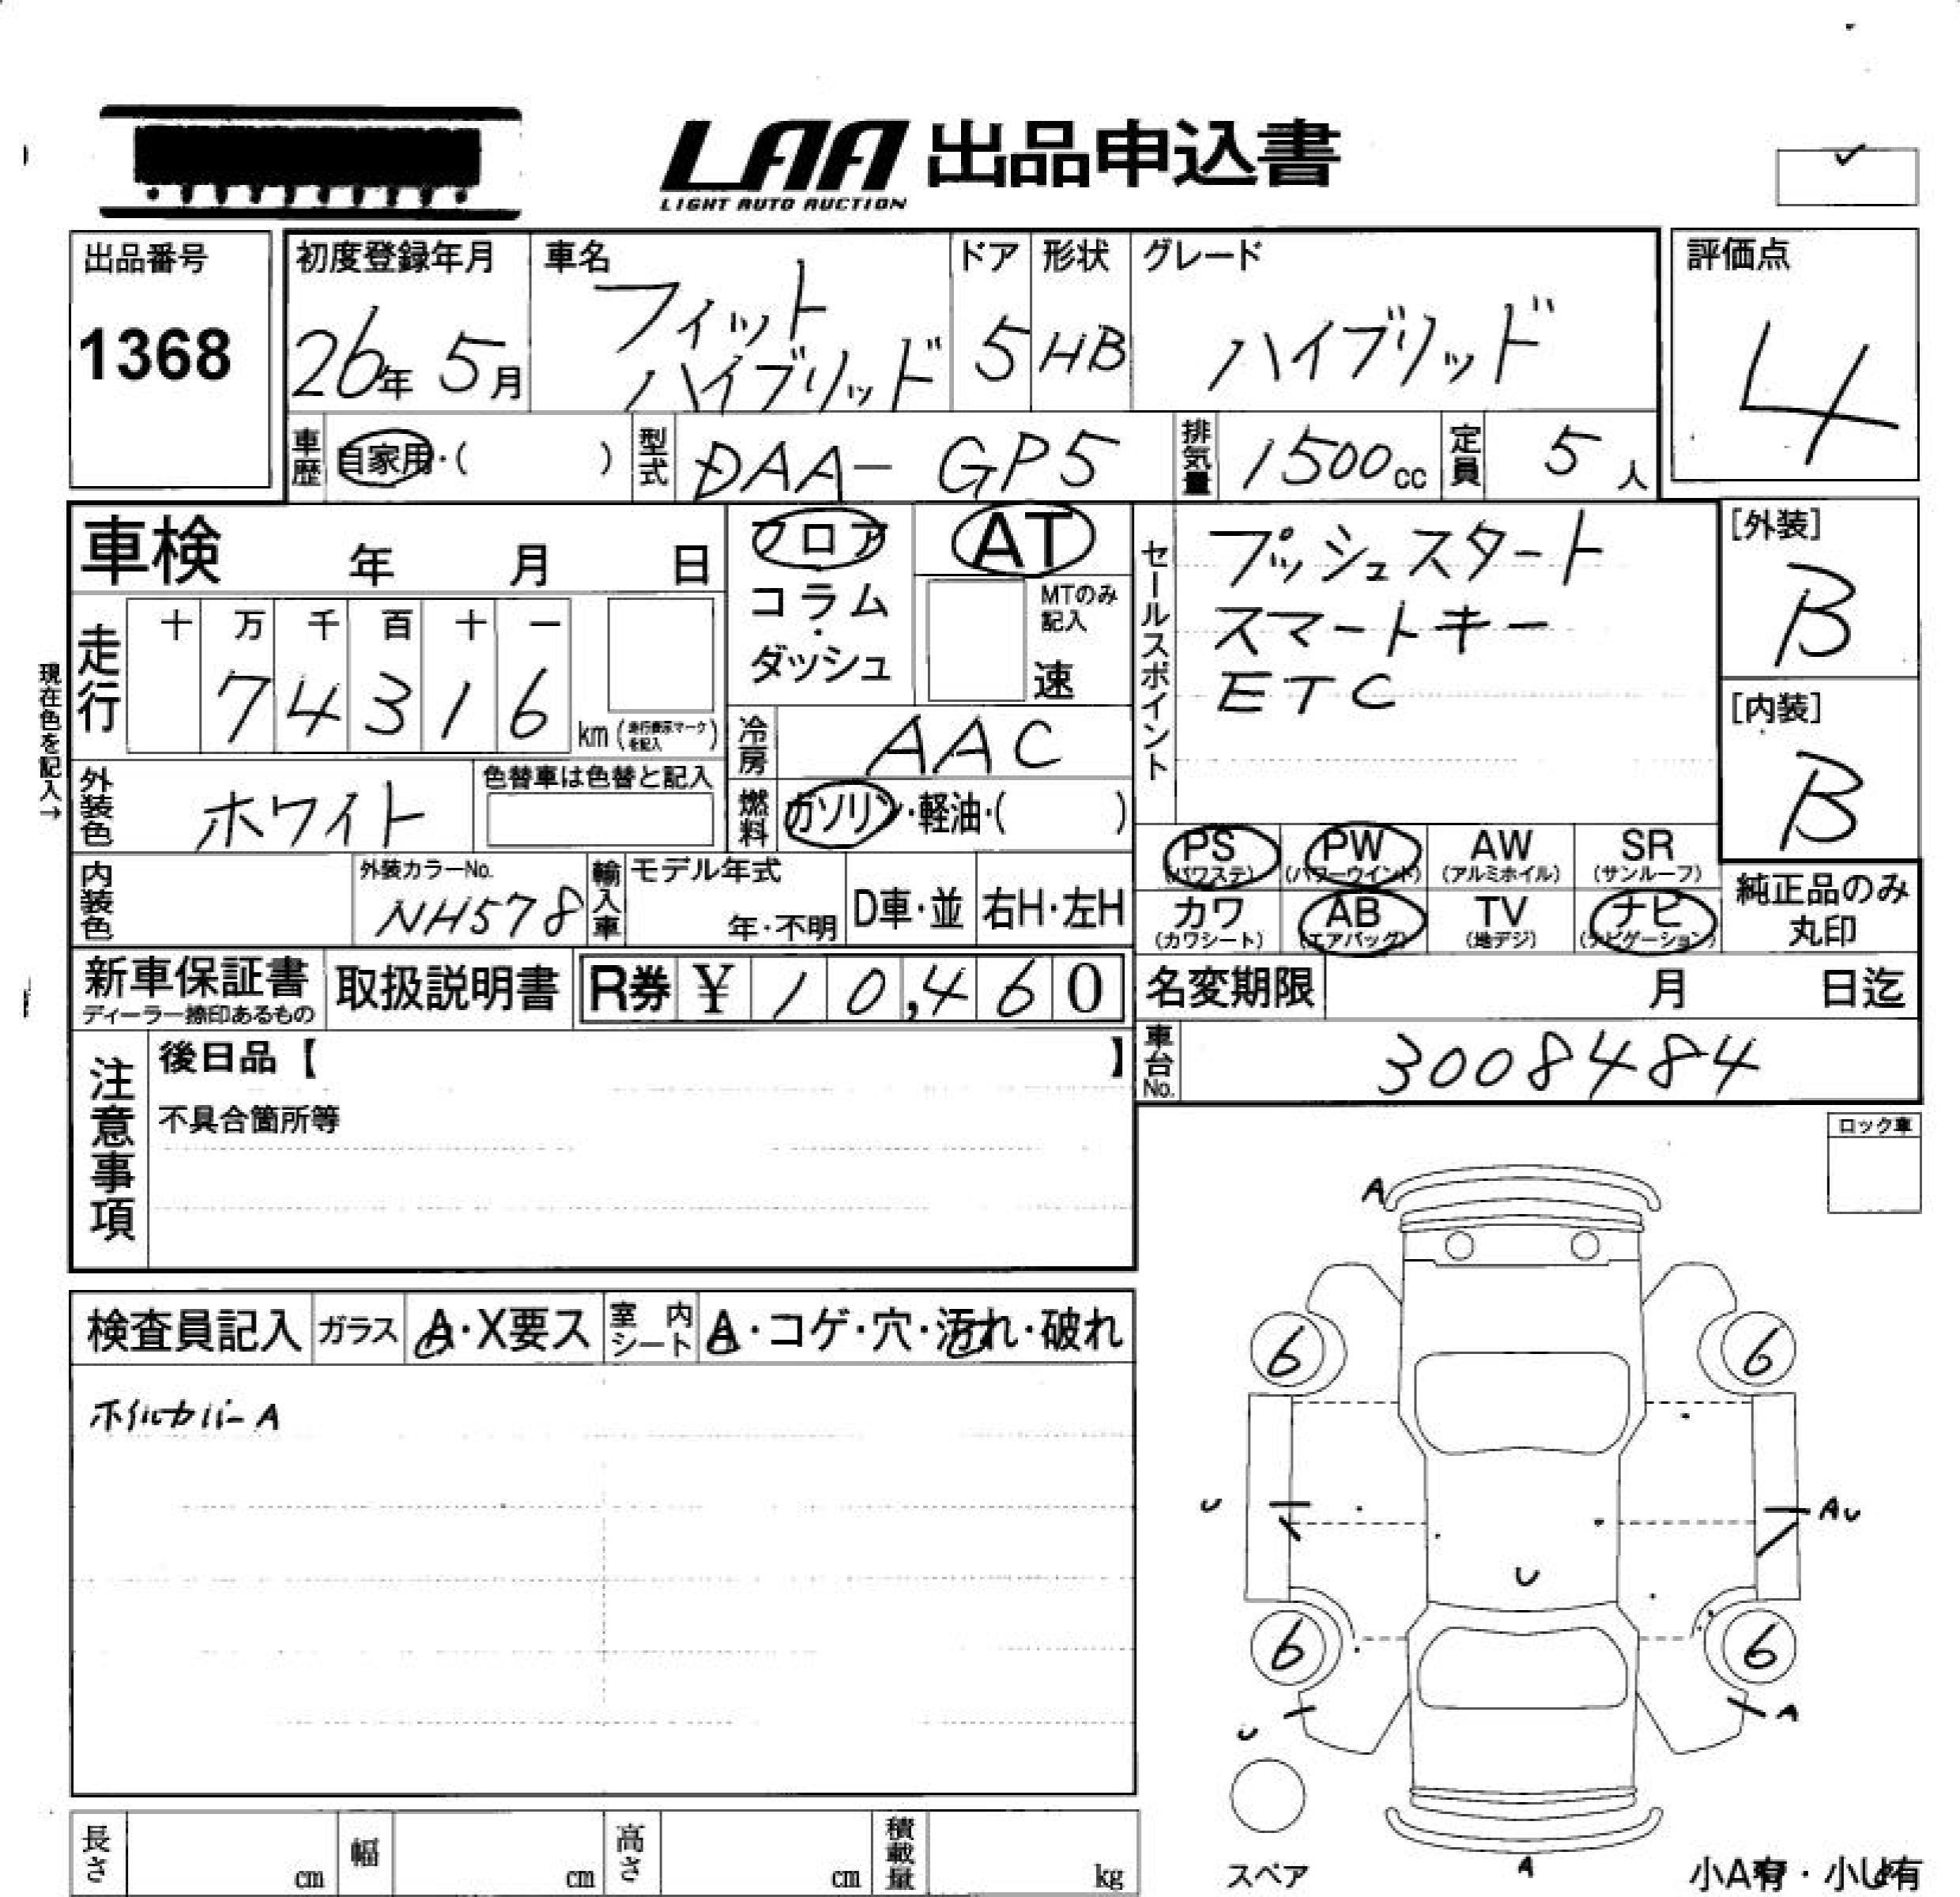 LAA 出品申込書
LIGHT AUTO AUCTION
出品番号
1368
初度登録年月
26年 5月
車名
フィット
ハイブリッド
ドア
5
形状
HB
グレード
ハイブリッド
評価点
4
車歴
自家用・( )
型式
DAA- GP5
排気量
1500cc
定員
5人
車検 年 月 日
走行
十 万 千 百 十 一
7 4 3 1 6
km(走行表示マークを記入)
フロア
コラム
・
ダッシュ
AT
MTのみ
記入
速
冷房
AAC
燃料
ガソリン・軽油・( )
セールスポイント
プッシュスタート
スマートキー
ETC
[外装]
B
[内装]
B
現在色を記入→
外装色
ホワイト
色替車は色替と記入
内装色
外装カラーNo.
NH578
輸入車
モデル年式
年・不明
D車・並
右H・左H
PS
(パワステ)
PW
(パワーウインド)
AW
(アルミホイル)
SR
(サンルーフ)
カワ
(カワシート)
AB
(エアバッグ)
TV
(地デジ)
ナビ
(ナビゲーション)
純正品のみ
丸印
新車保証書
ディーラー捺印あるもの
取扱説明書
R券 ¥ 10,460
名変期限 月 日迄
車台No.
3008484
注意事項
後日品【 】
不具合箇所等
ロック車
検査員記入
ガラス
A・X要ス
室内
シート
A・コゲ・穴・汚れ・破れ
ホイルカバーA
A
6 6
U
AU
U
6 6
U
A
スペア
A
小A有・小U有
長さ
cm
幅
cm
高さ
cm
積載量
kg